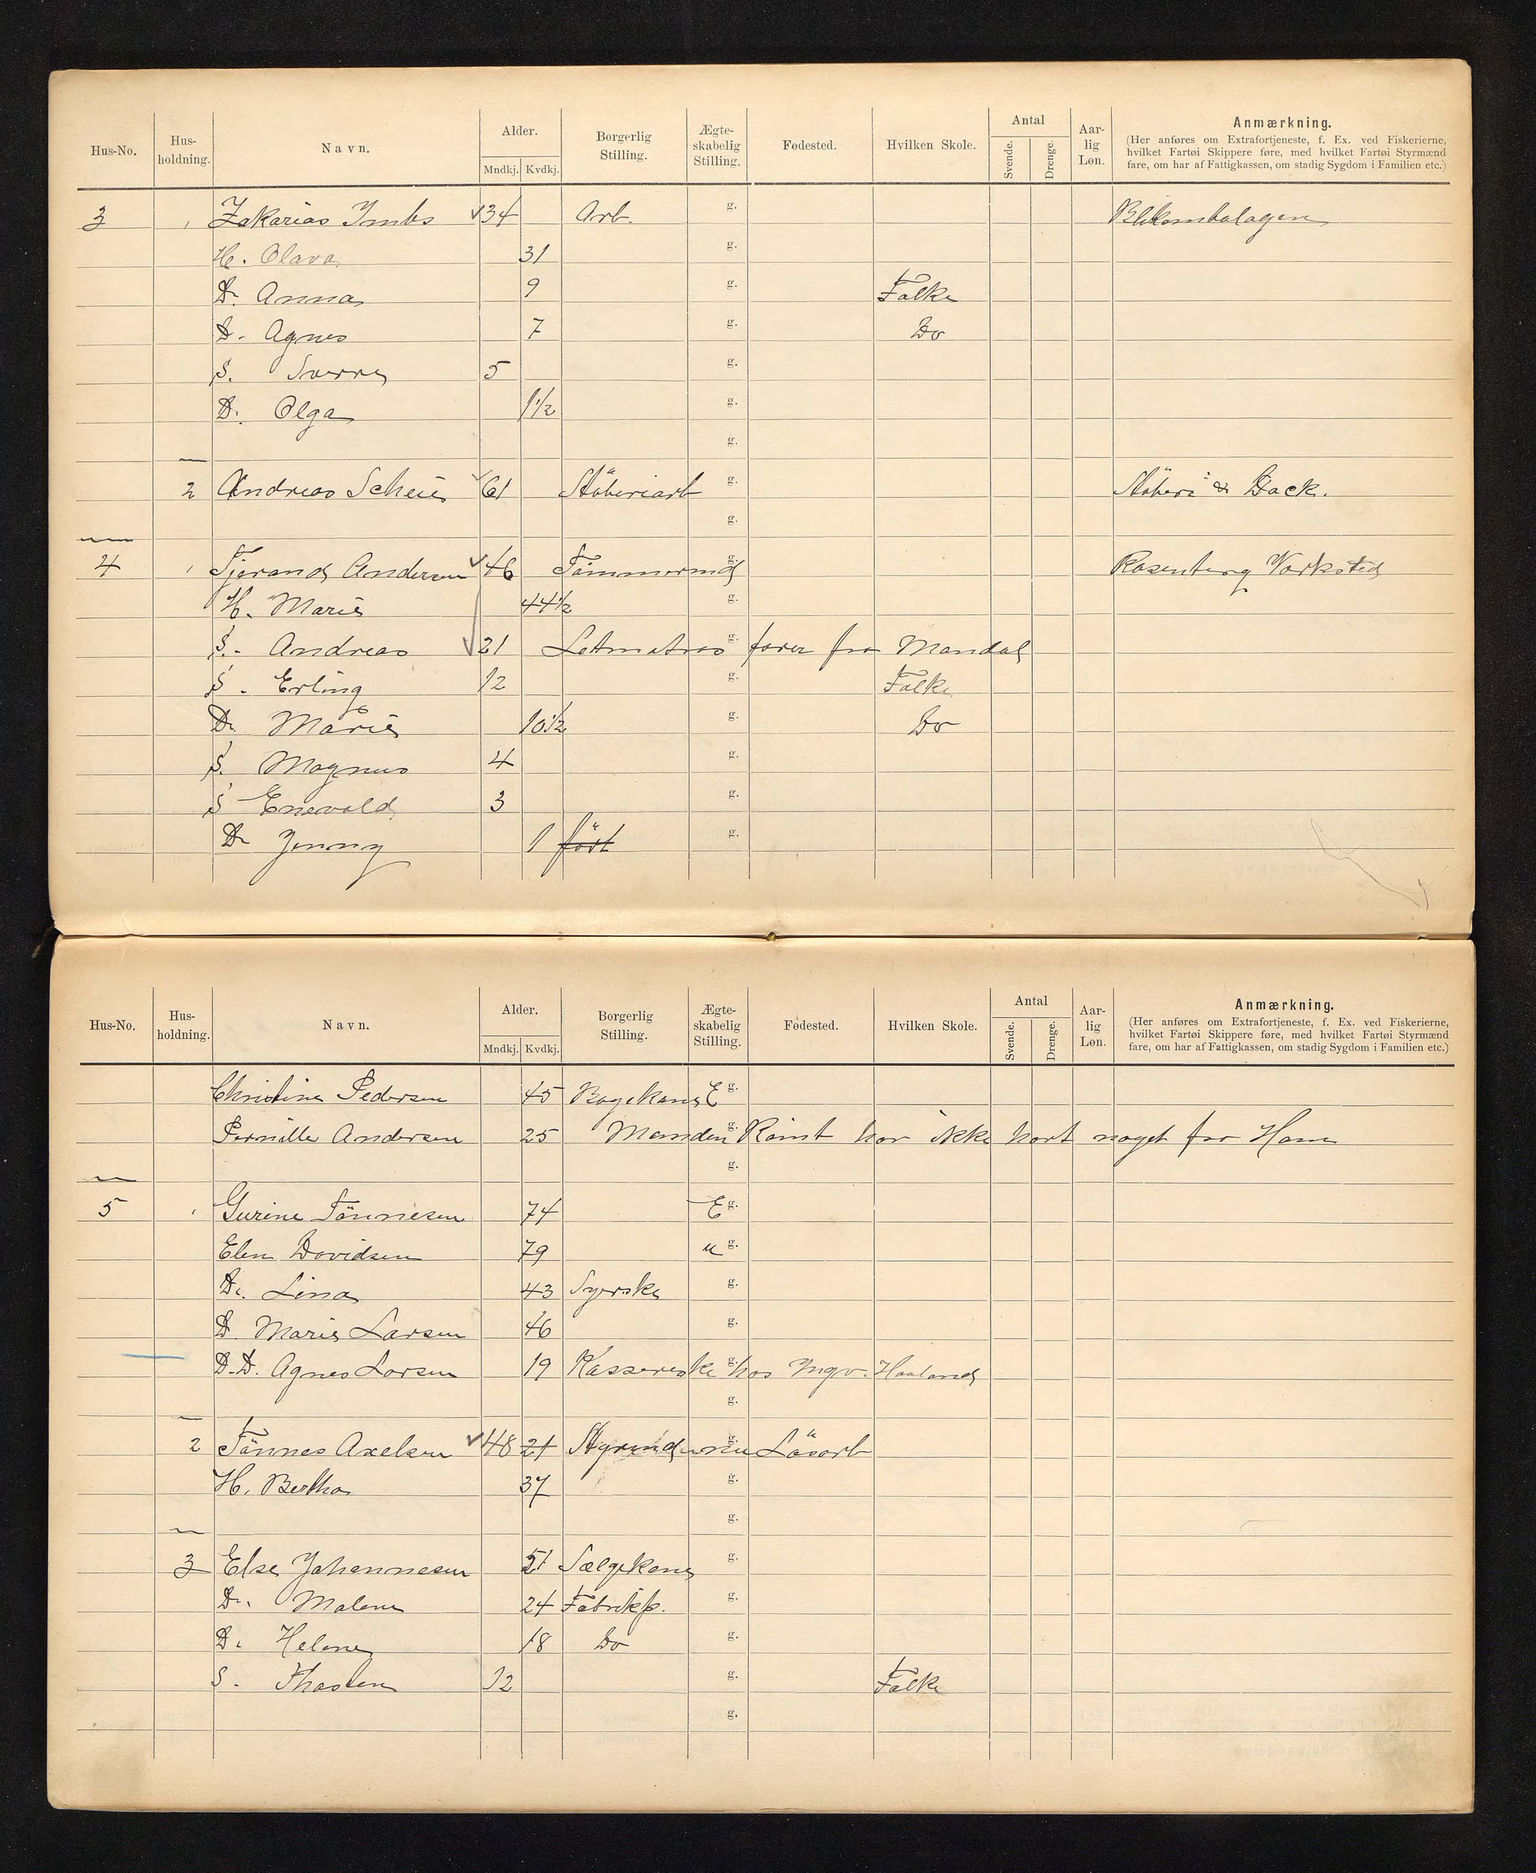 Hus-No. Hus-holdning. Navn. Alder. Mndkj. Kvdkj. Borgerlig Stilling. Ægte-skabelig Stilling. Fødested. Hvilken Skole. Antal Svende. Drenge. Aar-lig Løn. Anmærkning.
(Her anføres om Extrafortjeneste, f. Ex. ved Fiskerierne, hvilket Fartøi Skippere føre, med hvilket Fartøi Styrmænd fare, om har af Fattigkassen, om stadig Sygdom i Familien etc.)
3 1 Zakarias Imbs 34 Arb. g. Blikembalagen
H. Olava 31 g.
D. Anna 9 g. Folke
D. Agnes 7 g. Do
S. Sverre 5 g.
D. Olga 1½ g.
g.
2 Andreas Scheie 61 Stöberiarb g. Stöberi & Dock.
g.
4 1 Tjerand Andersen 46 Tömmermd g. Rosenberg Værksted
H. Marie 44½ g.
S. Andreas 21 Letmatros g. farer fra Mandal
S. Erling 12 g. Folke
D. Marie 10½ g. Do
S. Magnus 4 g.
S Enevald 3 g.
D. Jenny 1 födt g.
Hus-No. Hus-holdning. Navn. Alder. Mndkj. Kvdkj. Borgerlig Stilling. Ægte-skabelig Stilling. Fødested. Hvilken Skole. Antal Svende. Drenge. Aar-lig Løn. Anmærkning.
(Her anføres om Extrafortjeneste, f. Ex. ved Fiskerierne, hvilket Fartøi Skippere føre, med hvilket Fartøi Styrmænd fare, om har af Fattigkassen, om stadig Sygdom i Familien etc.)
Christine Pedersen 45 Bagekone E g.
Pernille Andersen 25 Manden g. Römt har ikke hört noget fra Ham
g.
5 1 Gurine Tönnesen 74 E g.
Elen Davidsen 79 u g.
D. Lina 43 Syerske g.
D. Marie Larsen 46 g.
D.D. Agnes Larsen 19 Kassereske g. hos Ingv. Haaland
g.
2 Tönnes Axelsen 48 21 Styrmd g. nu Lösarb
H. Bertha 37 g.
g.
3 Else Johannesen 51 Sælgekone g.
D. Malene 24 Fabrikp. g.
D. Helene 18 Do g.
S. Thasten 12 g. Folke
g.